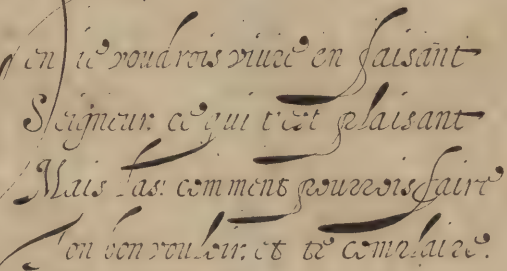 en ie voudrois viure en faisant
Seigneur ce qui t'est plaisant
Mais las: comment pourrois faire
Ton bon vouloir et te complaire.